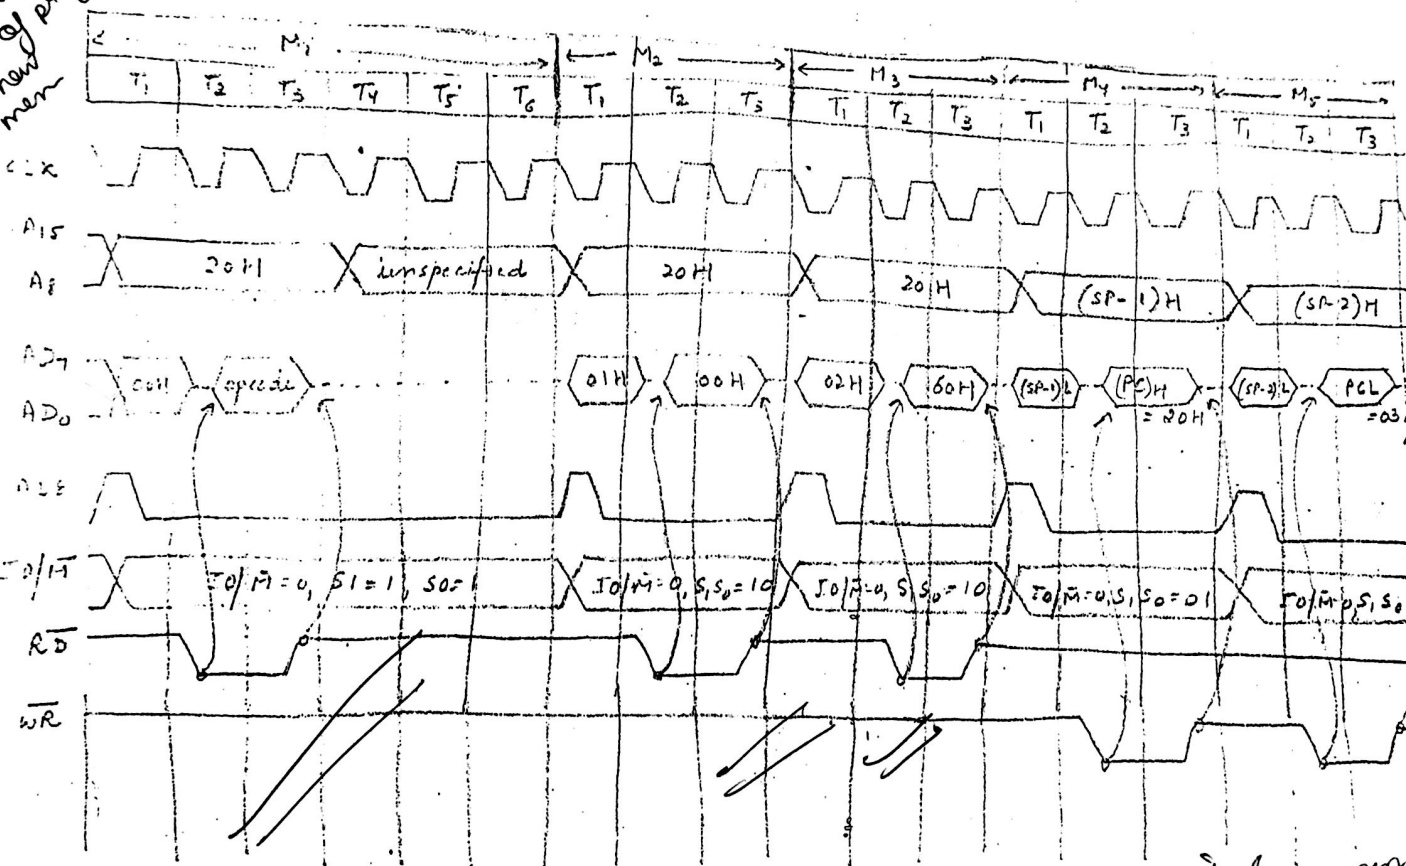 of
new
men
M1 M2 M3 M4 M5
T1 T2 T3 T4 T5 T6 T1 T2 T3 T1 T2 T3 T1 T2 T3 T1 T2 T3
CLK
A15
A8
20H unspecified 20H 20H (SP-1)H (SP-2)H
AD7
AD0
00H opcode 01H 00H 02H 60H (SP-1)L (PC)H (SP-2)L PCL
= 20H =03
ALE
IO/M̅
IO/M̅=0, S1=1, S0=1 IO/M̅=0, S1S0=10 IO/M̅=0, S1S0=10 IO/M̅=0, S1S0=01 IO/M̅=0, S1S0
R̅D̅
W̅R̅